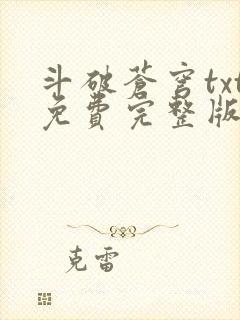 斗破蒼穹txt
免費完整版
克雷